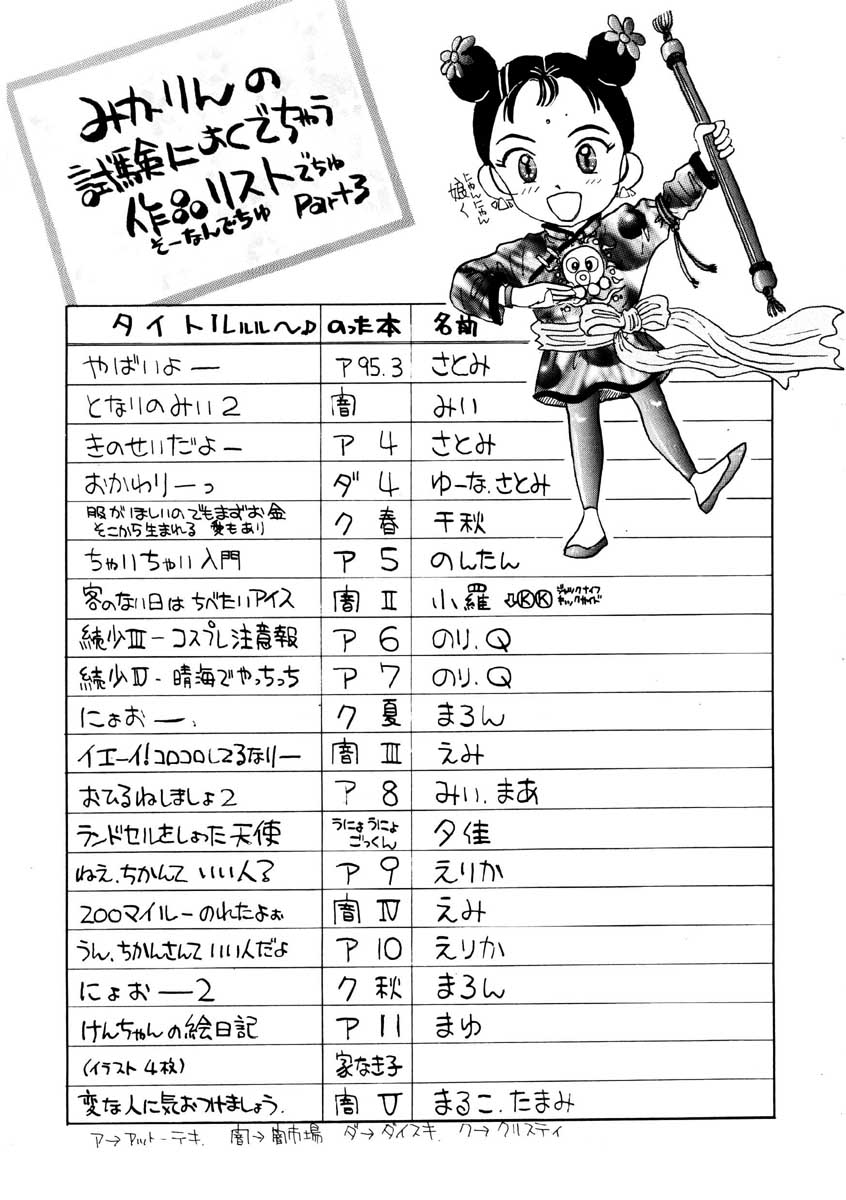 みかりんの
試験によくでちゃう
作品リストでちゅ
そーなんでちゅ Part3
にゃんにゃん
娘く
タイトルルル〜♪ のった本 名前
やばいよー ア95.3 さとみ
となりのみい2 闇 みい
きのせいだよー ア 4 さとみ
おかわりーっ ダ 4 ゆーな.さとみ
服がほしいのでもまずお金
そこから生まれる 愛もあり ク 春 千秋
ちゃいちゃい入門 ア 5 のんたん
客のない日は ちべたいアイス 闇 Ⅱ 小羅 ⓀⓀ ジャックナイフ
キックガイド
続少Ⅲ-コスプレ注意報 ア 6 のり.Q
続少Ⅳ-晴海でやっちっち ア 7 のり.Q
にょおー、 ク 夏 まろん
イエーイ!コロコロしてるなりー 闇 Ⅲ えみ
おひるねしましょ2 ア 8 みい.まあ
ランドセルをしょった天使 うにょうにょ
ごっくん 夕佳
ねえ.ちかんて いい人? ア 9 えりか
200マイルーのれたよぉ 闇 Ⅳ えみ
うん.ちかんさんて いい人だよ ア 10 えりか
にょおー2 ク 秋 まろん
けんちゃんの絵日記 ア 11 まゆ
(イラスト 4枚) 家なき子
変な人に気おつけましょう. 闇 Ⅴ まるこ.たまみ
ア→アットーテキ. 闇→闇市場 ダ→ダイスキ. ク→クリスティ